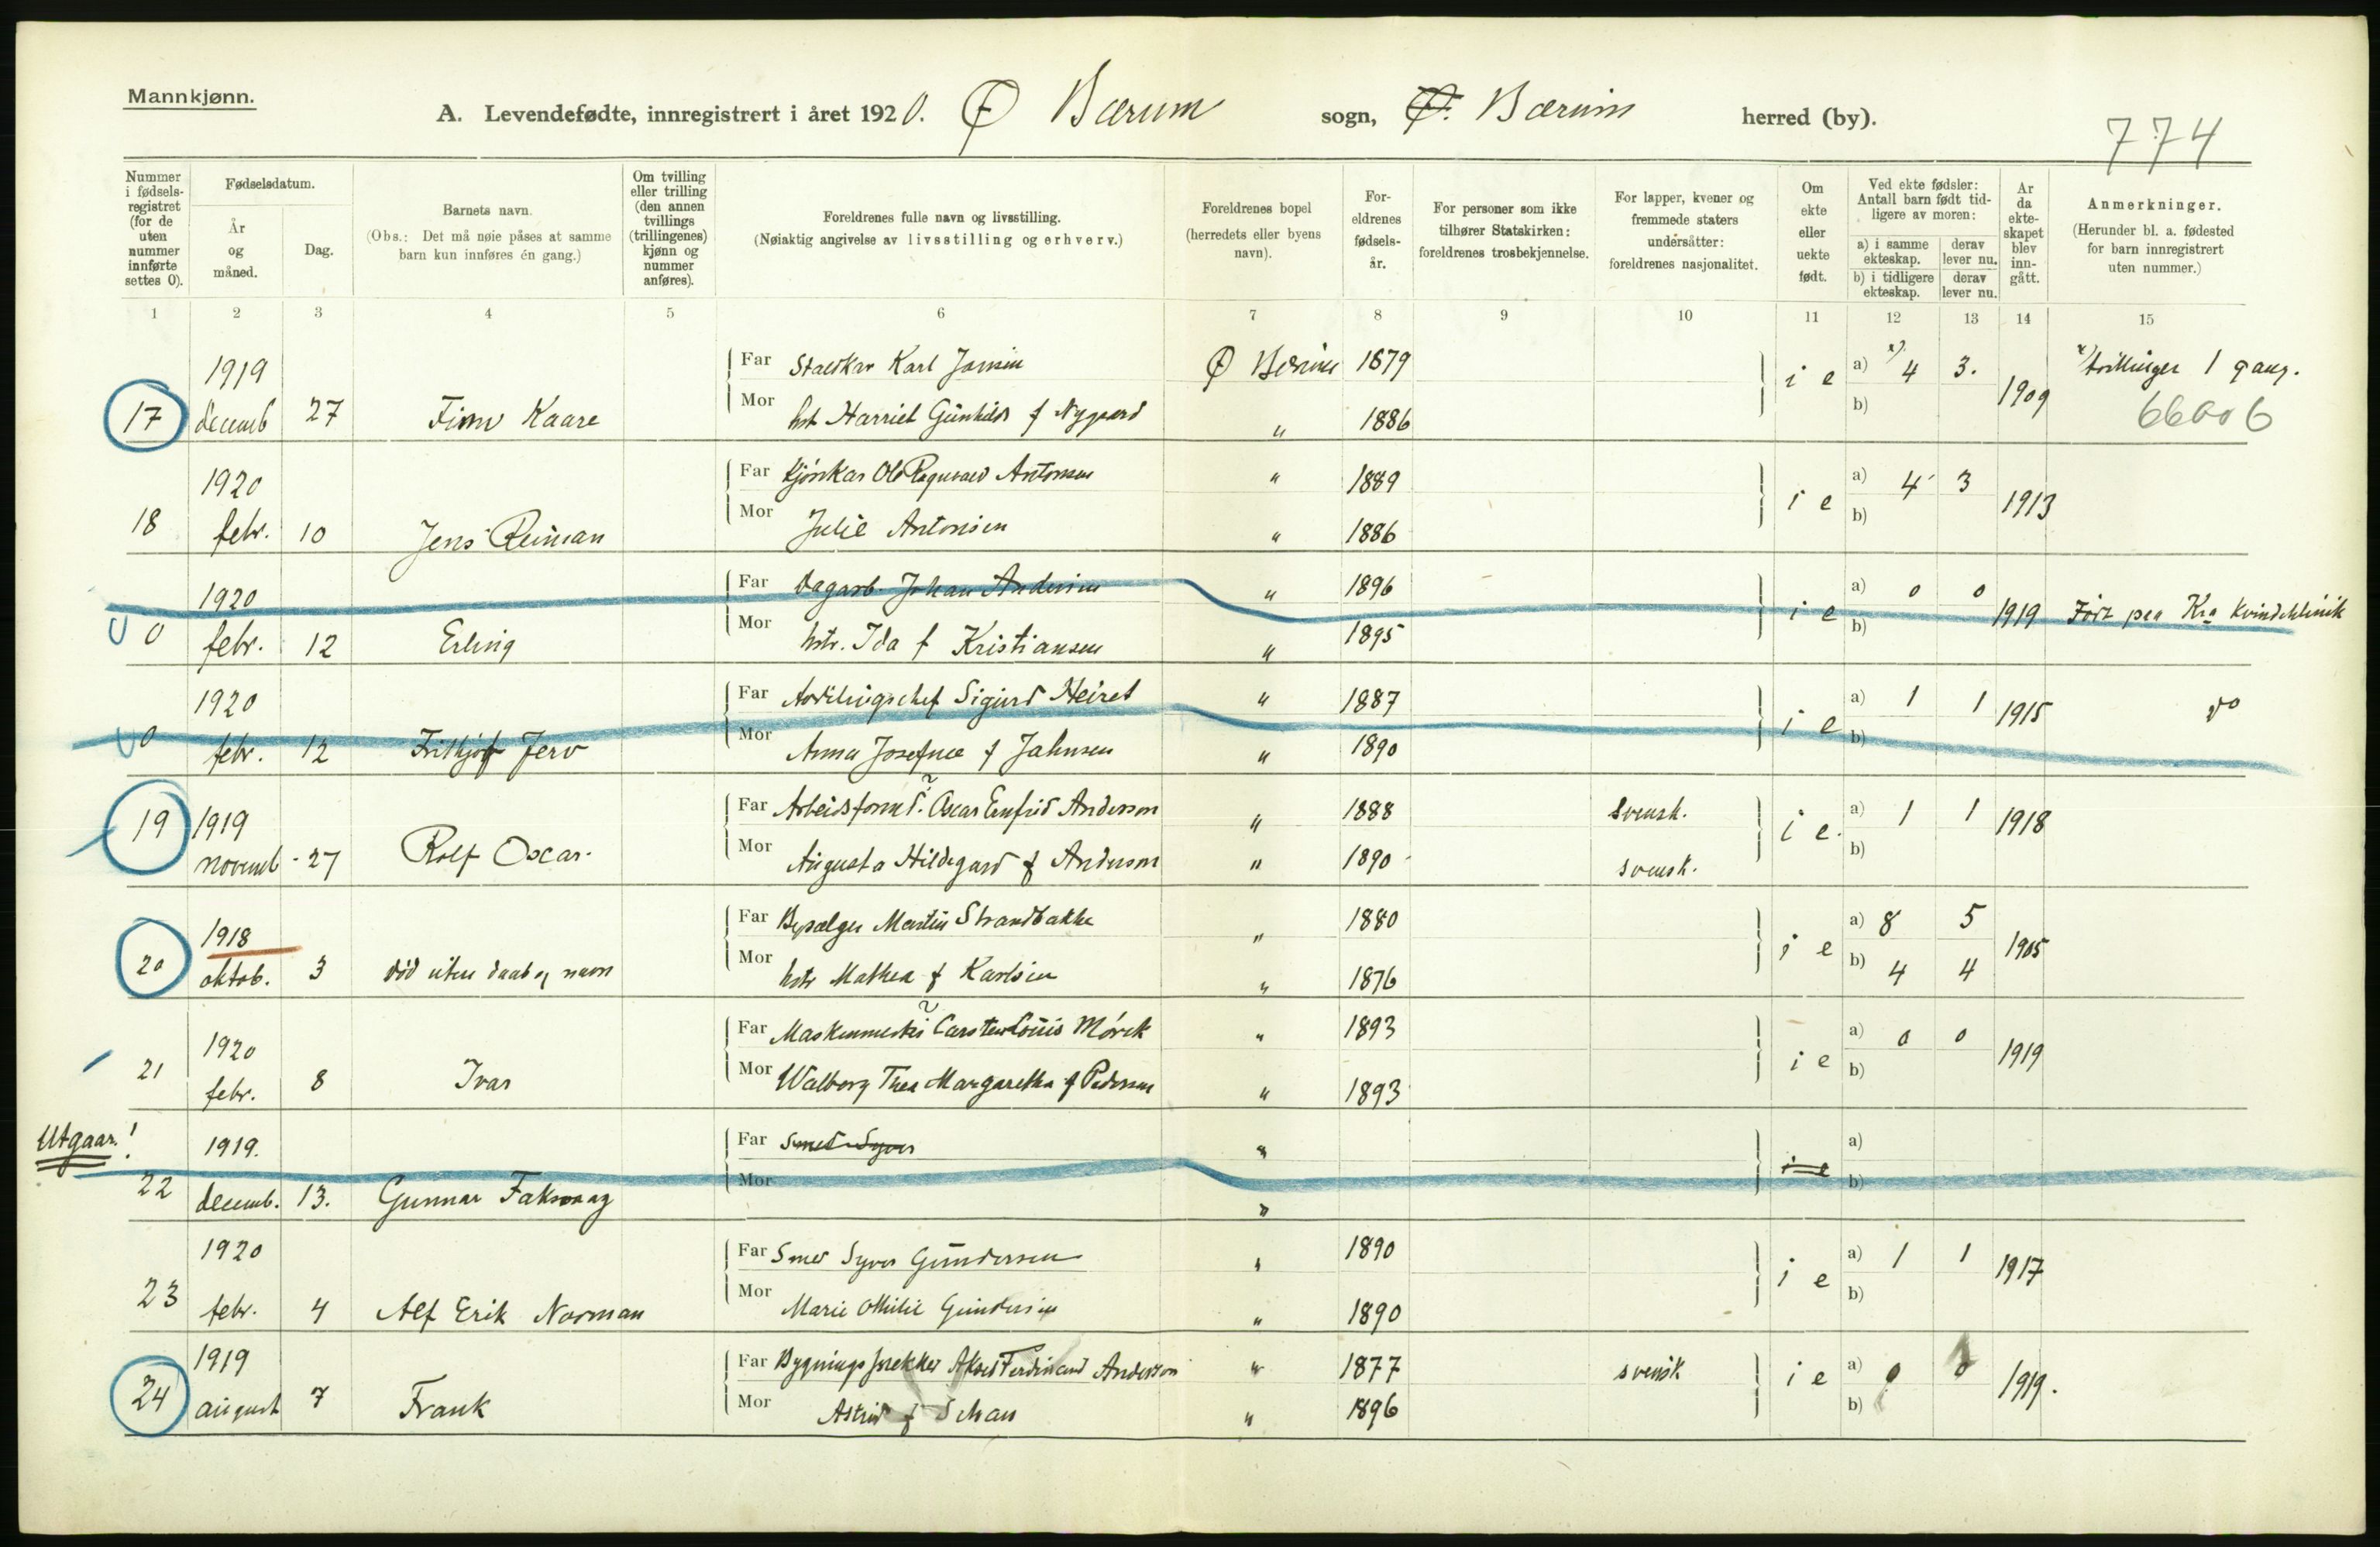 Mannkjønn.
A. Levendefødte, innregistrert i året 1920. Ø Bærum sogn, Ø. Bærum herred (by).
774
Nummer i fødsels-registret (for de uten nummer innførte settes 0).
Fødselsdatum.
År og måned.
Dag.
Barnets navn.
(Obs.: Det må nøie påses at samme barn kun innføres én gang.)
Om tvilling eller trilling (den annen tvillings (trillingenes) kjønn og nummer anføres).
Foreldrenes fulle navn og livsstilling.
(Nøiaktig angivelse av livsstilling og erhverv.)
Foreldrenes bopel (herredets eller byens navn).
For-eldrenes fødsels-år.
For personer som ikke tilhører Statskirken: foreldrenes trosbekjennelse.
For lapper, kvener og fremmede staters undersåtter: foreldrenes nasjonalitet.
Om ekte eller uekte født.
Ved ekte fødsler: Antall barn født tid-ligere av moren:
a) i samme ekteskap. derav lever nu.
b) i tidligere ekteskap. derav lever nu.
År da ekte-skapet blev inn-gått.
Anmerkninger.
(Herunder bl. a. fødested for barn innregistrert uten nummer.)
1 2 3 4 5 6 7 8 9 10 11 12 13 14 15
17 1919 decemb 27 Finn Kaare
Far Staldkar Karl Jonsen Ø Bærum 1879
Mor hst Harriet Gunhild f Nygaard " 1886
i e a) x) 4 3. b) 1909 x) tvillinger 1 gang.
66006
18 1920 febr. 10 Jens Reiman
Far Kjørekar Ole Ragnvald Antonsen " 1889
Mor Julie Antonsen " 1886
i e a) 4 3 b) 1913
0 1920 febr. 12 Erling
Far Dagarb. Johan Andersen " 1896
Mor hstr. Ida f Kristiansen " 1895
i e a) 0 0 b) 1919 Født paa Kra Kvindeklinik
0 1920 febr. 12 Frithjof Jerv
Far Avdelingschef Sigurd Heiret " 1887
Mor Anna Josefine f Jahnsen " 1890
i e a) 1 1 b) 1915 do
19 1919 novemb - 27 Rolf Oscar.
Far Arbeidsform. Oscar Enfrid Anderson " 1888 svensk.
Mor Augusta Hildegard f Anderson " 1890 svensk.
i e. a) 1 1 b) 1918
20 1918 oktob. 3 død uten daab og navn
Far Martin Strandbakke " 1880
Mor hstr Mathea f Karlsen " 1876
i e a) 8 5 b) 4 4 1905
21 1920 febr. 8 Ivar
Far Maskinmester Carsten Louis Mörck " 1893
Mor Walborg Thea Margaretha f Pedersen " 1893
i e a) 0 0 b) 1919
Utgaar!
22 1919. decemb. 13. Gunnar
Far Smed Syver "
Mor "
i e a) b)
23 1920 febr. 4 Alf Erik Norman
Far Smed Syver Gundersen " 1890
Mor Marie Othilie Gundersen " 1890
i e a) 1 1 b) 1917
24 1919 august 7 Frank
Far Bygningssnekker Aksel Ferdinand Anderson " 1877 svensk
Mor Astrid f " 1896
i e a) 0 0 b) 1919.